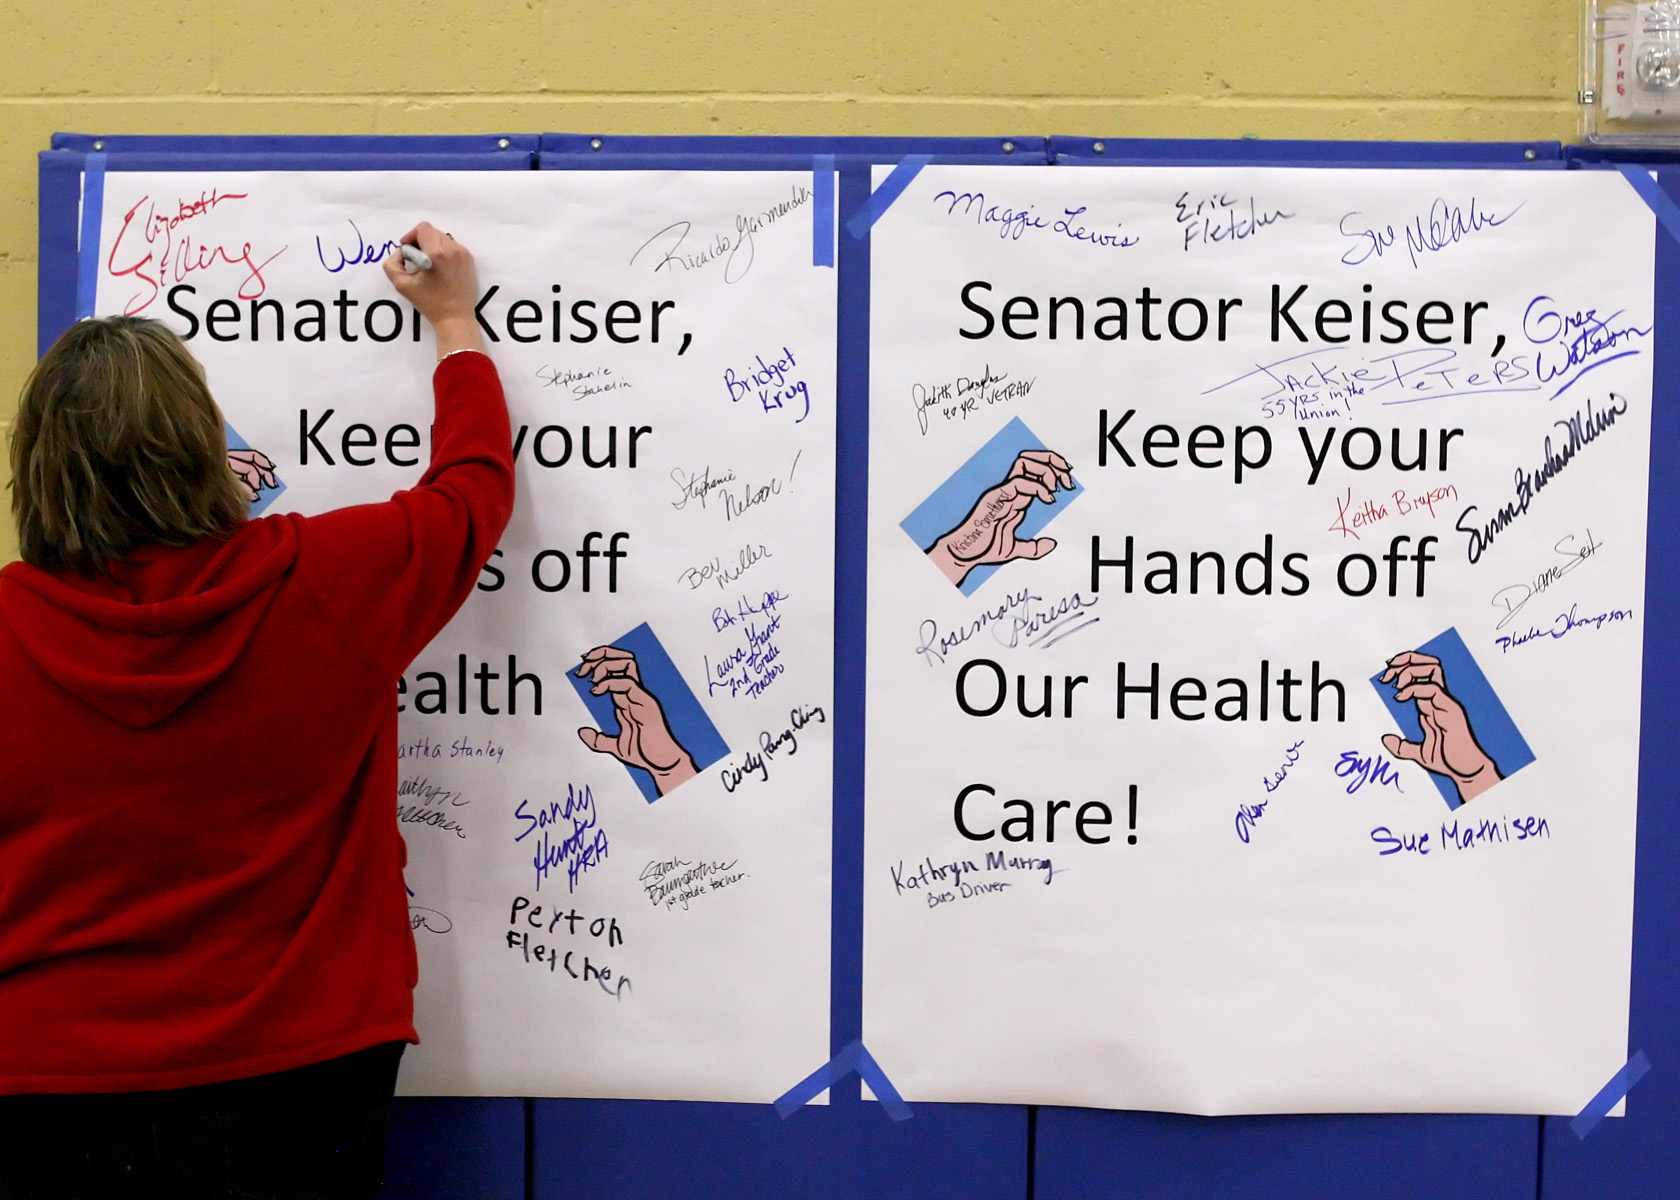 FIRE
Elizabeth
Silling
Wen
Ricardo Garmendia
Senator Keiser,
Stephanie
Stahelin
Bridget
Krug
Keep your
Stephanie
Nelson!
s off
Ben
Miller
Bob Huppe
Laura Grant
2nd Grade
Teacher
ealth
Cindy Pang-Ching
artha Stanley
aithyn
Sandy
Hunt
HRA
Sarah
Baumgartner
1st grade teacher.
Peyton
Fletcher
Maggie Lewis
Eric
Fletcher
Sue McCabe
Senator Keiser,
Greg
Watson
Jackie Peters
55 yrs in the
Union!
Judith Douglas
40 YR VETERAN
Keep your
Keitha Bryson
Susan Bradshaw McLain
Hands off
Diane Seil
Phoebe Thompson
Rosemary
Paresa
Our Health
Sym
Care!
Sue Mathisen
Kathryn Murray
Bus Driver